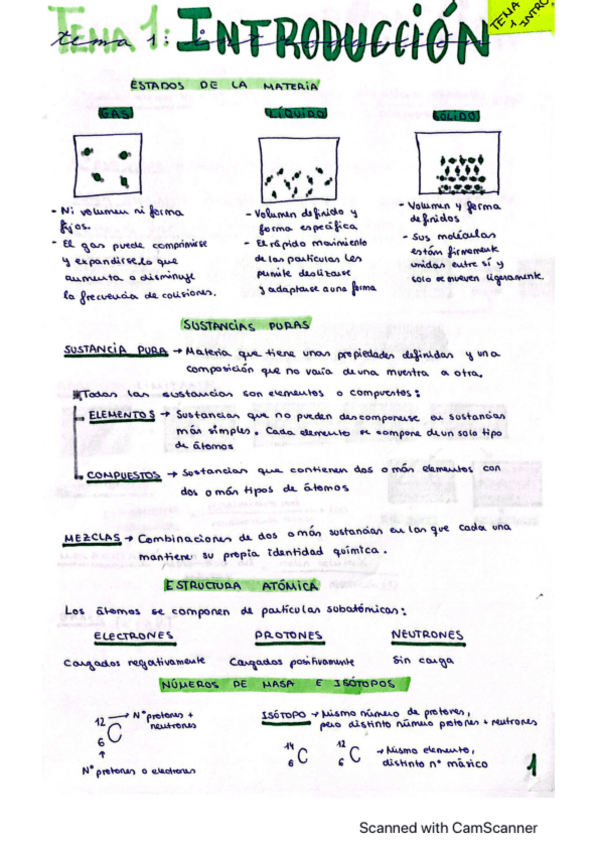 TEMA 1: INTRODUCCIÓN
tema 1: introducción
TEMA
1 INTRO.
ESTADOS DE LA MATERIA
GAS
LÍQUIDO
SÓLIDO
- Ni volumen ni forma
fijos.
- El gas puede comprimirse
y expandirse lo que
aumenta o disminuye
la frecuencia de colisiones.
- Volumen definido y
forma específica
- El rápido movimiento
de las partículas les
permite deslizarse
y adaptarse a una forma
- Volumen y forma
definidos
- Sus moléculas
están firmemente
unidas entre sí y
solo se mueven ligeramente.
SUSTANCIAS PURAS
SUSTANCIA PURA → Materia que tiene unas propiedades definidas y una
composición que no varía de una muestra a otra.
Todas las sustancias son elementos o compuestos:
ELEMENTOS → Sustancias que no pueden descomponerse en sustancias
más simples. Cada elemento se compone de un solo tipo
de átomos
COMPUESTOS → Sustancias que contienen dos o más elementos con
dos o más tipos de átomos
MEZCLAS → Combinaciones de dos o más sustancias en las que cada una
mantiene su propia identidad química.
ESTRUCTURA ATÓMICA
Los átomos se componen de partículas subatómicas:
ELECTRONES PROTONES NEUTRONES
Cargados negativamente Cargados positivamente Sin carga
NÚMEROS DE MASA E ISÓTOPOS
12 → Nº protones +
neutrones
C
6
↑
Nº protones o electrones
ISÓTOPO → Mismo número de protones,
pero distinto número protones + neutrones
14 C 12 C → Mismo elemento,
6 6 distinto nº másico
1
Scanned with CamScanner